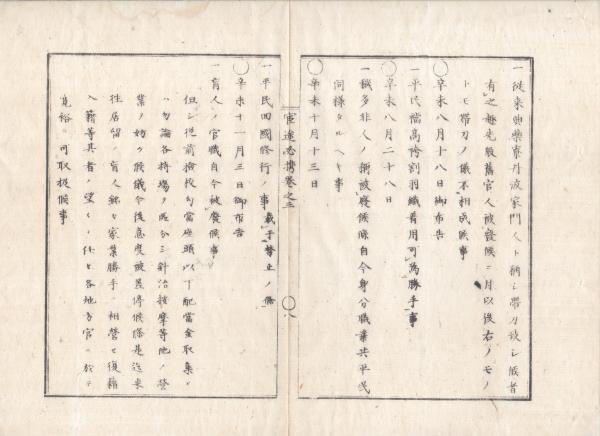 一従来典薬寮丹波家門人ト称シ帯刀致シ候者
有之趣先般舊官人被廢候ニ付以後右ノモノ
トモ帯刀ノ儀不相成候事
○辛未八月十八日御布告
一平民襠高袴割羽織着用可為勝手事
○辛未八月二十八日
一穢多非人ノ稱被廢候條自今身分職業共平民
同様タルヘキ事
○辛未十月十三日
巻之三
○八
一平民四國修行ノ事
○辛未十一月三日御布告
一盲人ノ官職自今被廢候事
但シ従前檢校勾當座頭以下配當金取集メ
ハ勿論各持場ヲ區分シ針治按摩等他ノ營
業ノ妨ケ候儀今後急度被差停候條是迄東
住居留ノ盲人銘々家業勝手ニ相營セ復籍
入籍等其者ノ望ミニ任セ各地方官ニ於テ
寛裕ニ可取扱候事